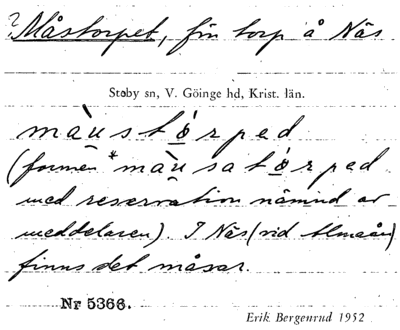 ?Måstorpet, fm torp å Näs
Stoby sn, V. Göinge hd, Krist. län.
màu̯stȯ́rped
(formen *màu̯satȯ́rped
med reservation nämnd av
meddelaren). I Näs (vid Almaån)
finns det måsar.
Nr 5366.
Erik Bergenrud 1952